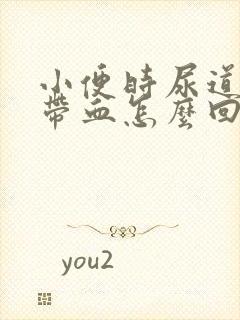 小便時尿道
帶血怎麼回
you2